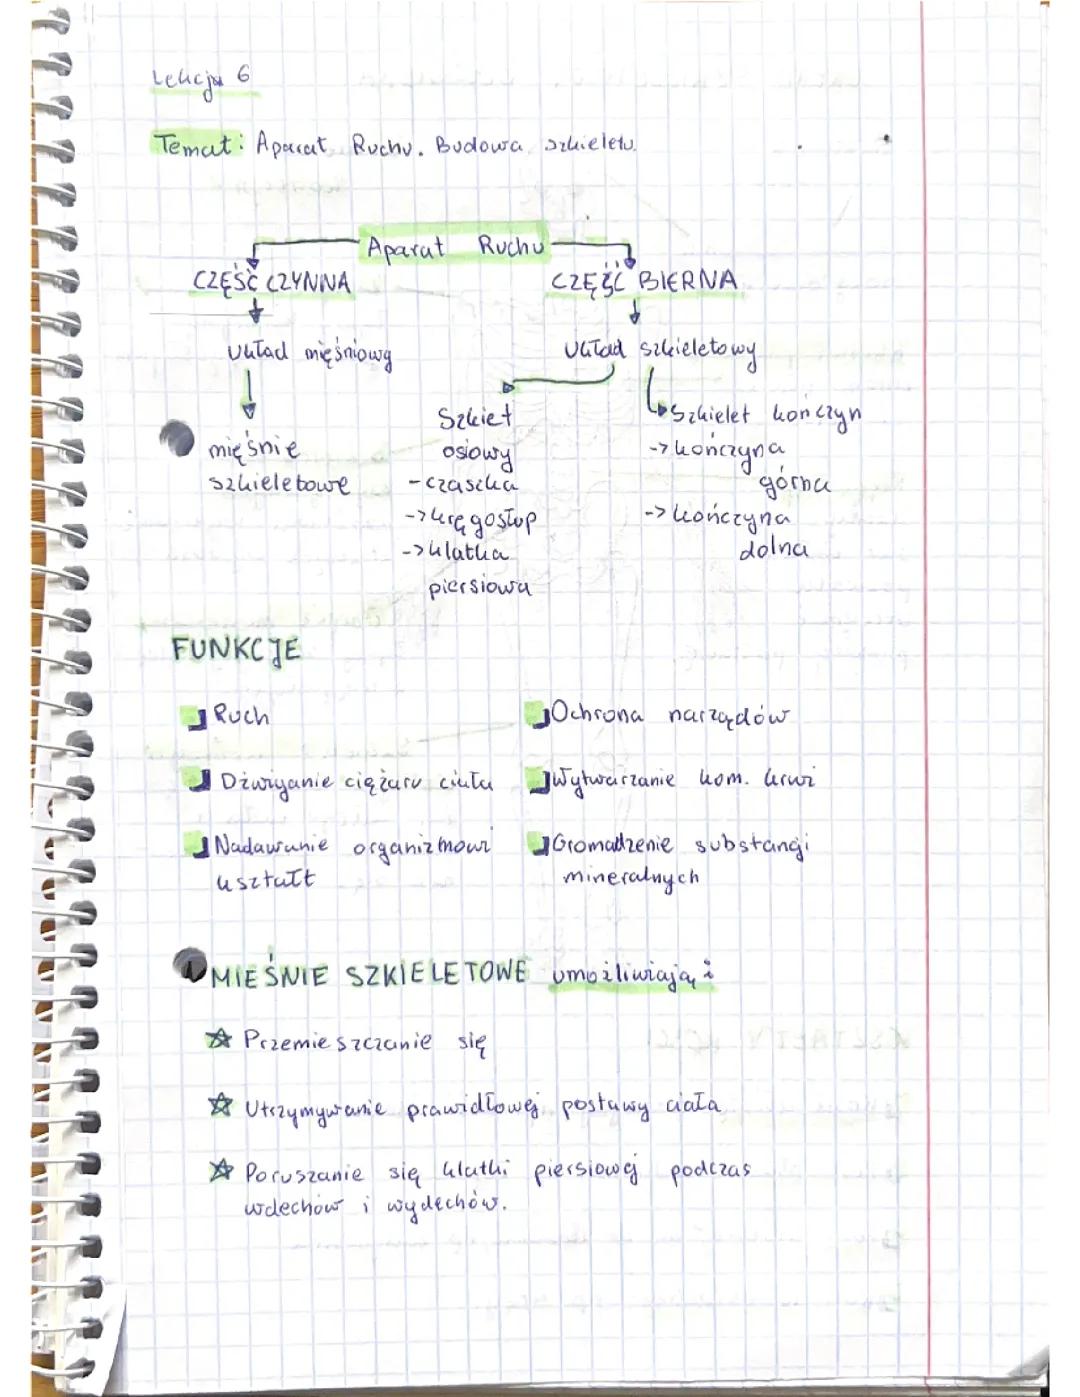 Lekcja 6
Temat: Aparat Ruchu. Budowa szkieletu.
Aparat Ruchu
CZĘŚĆ CZYNNA
układ mięśniowy
mięśnie
szkieletowe
CZĘŚĆ BIERNA
układ szkieletowy
Szkiet
osiowy
-czaszka
->kręgosłup
->klatka
piersiowa
Szkielet kończyn
->kończyna
górna
->kończyna
dolna
FUNKCJE
Ruch
Dźwiganie ciężaru ciała
Nadawanie organizmowi
kształt
Ochrona narządów
Wytwarzanie kom. krwi
Gromadzenie substangi
mineralnych
MIEŚNIE SZKIELETOWE umożliwiają:
☆ Przemieszczanie się
☆ Utrzymywanie prawidłowej postawy ciała
☆ Poruszanie się klatki piersiowej podczas
wdechów i wydechów.